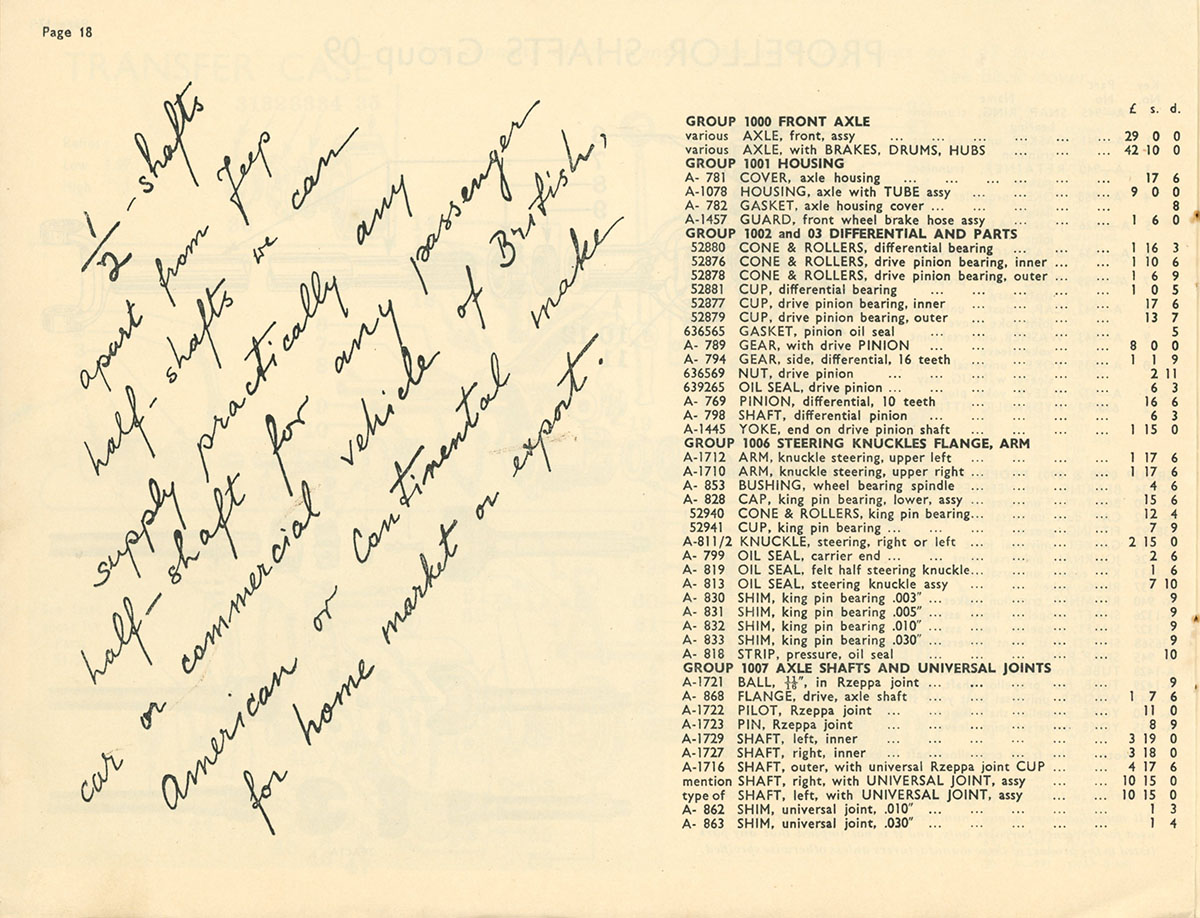 Page 18
½-shafts
apart from Jeep
half-shafts we can
supply practically any
half-shaft for any passenger
car or commercial vehicle of British,
American or Continental make
for home market or export.
£ s. d.
GROUP 1000 FRONT AXLE
various AXLE, front, assy ... ... ... ... ... 29 0 0
various AXLE, with BRAKES, DRUMS, HUBS ... ... ... 42 10 0
GROUP 1001 HOUSING
A- 781 COVER, axle housing ... ... ... ... ... 17 6
A-1078 HOUSING, axle with TUBE assy ... ... ... ... 9 0 0
A- 782 GASKET, axle housing cover ... ... ... ... ... 8
A-1457 GUARD, front wheel brake hose assy ... ... ... 1 6 0
GROUP 1002 and 03 DIFFERENTIAL AND PARTS
52880 CONE & ROLLERS, differential bearing ... ... ... 1 16 3
52876 CONE & ROLLERS, drive pinion bearing, inner ... ... 1 10 6
52878 CONE & ROLLERS, drive pinion bearing, outer ... ... 1 6 9
52881 CUP, differential bearing ... ... ... ... ... 1 0 5
52877 CUP, drive pinion bearing, inner ... ... ... ... 17 6
52879 CUP, drive pinion bearing, outer ... ... ... ... 13 7
636565 GASKET, pinion oil seal ... ... ... ... ... 5
A- 789 GEAR, with drive PINION ... ... ... ... ... 8 0 0
A- 794 GEAR, side, differential, 16 teeth ... ... ... ... 1 1 9
636569 NUT, drive pinion ... ... ... ... ... ... 2 11
639265 OIL SEAL, drive pinion ... ... ... ... ... 6 3
A- 769 PINION, differential, 10 teeth ... ... ... ... 16 6
A- 798 SHAFT, differential pinion ... ... ... ... ... 6 3
A-1445 YOKE, end on drive pinion shaft ... ... ... ... 1 15 0
GROUP 1006 STEERING KNUCKLES FLANGE, ARM
A-1712 ARM, knuckle steering, upper left ... ... ... ... 1 17 6
A-1710 ARM, knuckle steering, upper right ... ... ... ... 1 17 6
A- 853 BUSHING, wheel bearing spindle ... ... ... ... 4 6
A- 828 CAP, king pin bearing, lower, assy ... ... ... ... 15 6
52940 CONE & ROLLERS, king pin bearing... ... ... ... 12 4
52941 CUP, king pin bearing ... ... ... ... ... 7 9
A-811/2 KNUCKLE, steering, right or left ... ... ... ... 2 15 0
A- 799 OIL SEAL, carrier end ... ... ... ... ... 2 6
A- 819 OIL SEAL, felt half steering knuckle... ... ... ... 1 6
A- 813 OIL SEAL, steering knuckle assy ... ... ... ... 7 10
A- 830 SHIM, king pin bearing .003″ ... ... ... ... ... 9
A- 831 SHIM, king pin bearing .005″ ... ... ... ... ... 9
A- 832 SHIM, king pin bearing .010″ ... ... ... ... ... 9
A- 833 SHIM, king pin bearing .030″ ... ... ... ... ... 9
A- 818 STRIP, pressure, oil seal ... ... ... ... ... 10
GROUP 1007 AXLE SHAFTS AND UNIVERSAL JOINTS
A-1721 BALL, 11/16″, in Rzeppa joint ... ... ... ... ... 9
A- 868 FLANGE, drive, axle shaft ... ... ... ... ... 1 7 6
A-1722 PILOT, Rzeppa joint ... ... ... ... ... 11 0
A-1723 PIN, Rzeppa joint ... ... ... ... ... ... 8 9
A-1729 SHAFT, left, inner ... ... ... ... ... ... 3 19 0
A-1727 SHAFT, right, inner ... ... ... ... ... ... 3 18 0
A-1716 SHAFT, outer, with universal Rzeppa joint CUP ... ... 4 17 6
mention SHAFT, right, with UNIVERSAL JOINT, assy ... ... 10 15 0
type of SHAFT, left, with UNIVERSAL JOINT, assy ... ... 10 15 0
A- 862 SHIM, universal joint, .010″ ... ... ... ... ... 1 3
A- 863 SHIM, universal joint, .030″ ... ... ... ... ... 1 4